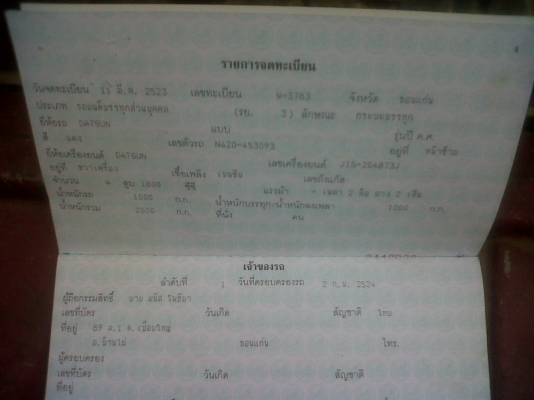 4
รายการจดทะเบียน
วันจดทะเบียน 11 มี.ค. 2523 เลขทะเบียน น-3763 จังหวัด ขอนแก่น
ประเภท รถยนต์บรรทุกส่วนบุคคล (รย. 3) ลักษณะ กระบะบรรทุก
ยี่ห้อรถ DATSUN แบบ รุ่นปี ค.ศ.
สี แดง เลขตัวรถ N620-453093 อยู่ที่ หน้าซ้าย
ยี่ห้อเครื่องยนต์ DATSUN เลขเครื่องยนต์ J15-264873
อยู่ที่ ขวาเครื่อง เชื้อเพลิง เบนซิน เลขถังแก๊ส
จำนวน 4 สูบ 1600 ซีซี แรงม้า - เพลา 2 ล้อ ยาง 2 เส้น
น้ำหนักรถ 1500 ก.ก. น้ำหนักบรรทุก/น้ำหนักลงเพลา 1000 ก.ก.
น้ำหนักรวม 2500 ก.ก. ที่นั่ง คน
เจ้าของรถ
ลำดับที่ 1 วันที่ครอบครองรถ 2 ก.พ. 2524
ผู้ถือกรรมสิทธิ์ นาย
เลขที่บัตร วันเกิด สัญชาติ ไทย
ที่อยู่ 89 ม.1 ต.เมืองใหญ่
อ.บ้านไผ่ ขอนแก่น โทร.
ผู้ครอบครอง
เลขที่บัตร วันเกิด สัญชาติ
ที่อยู่